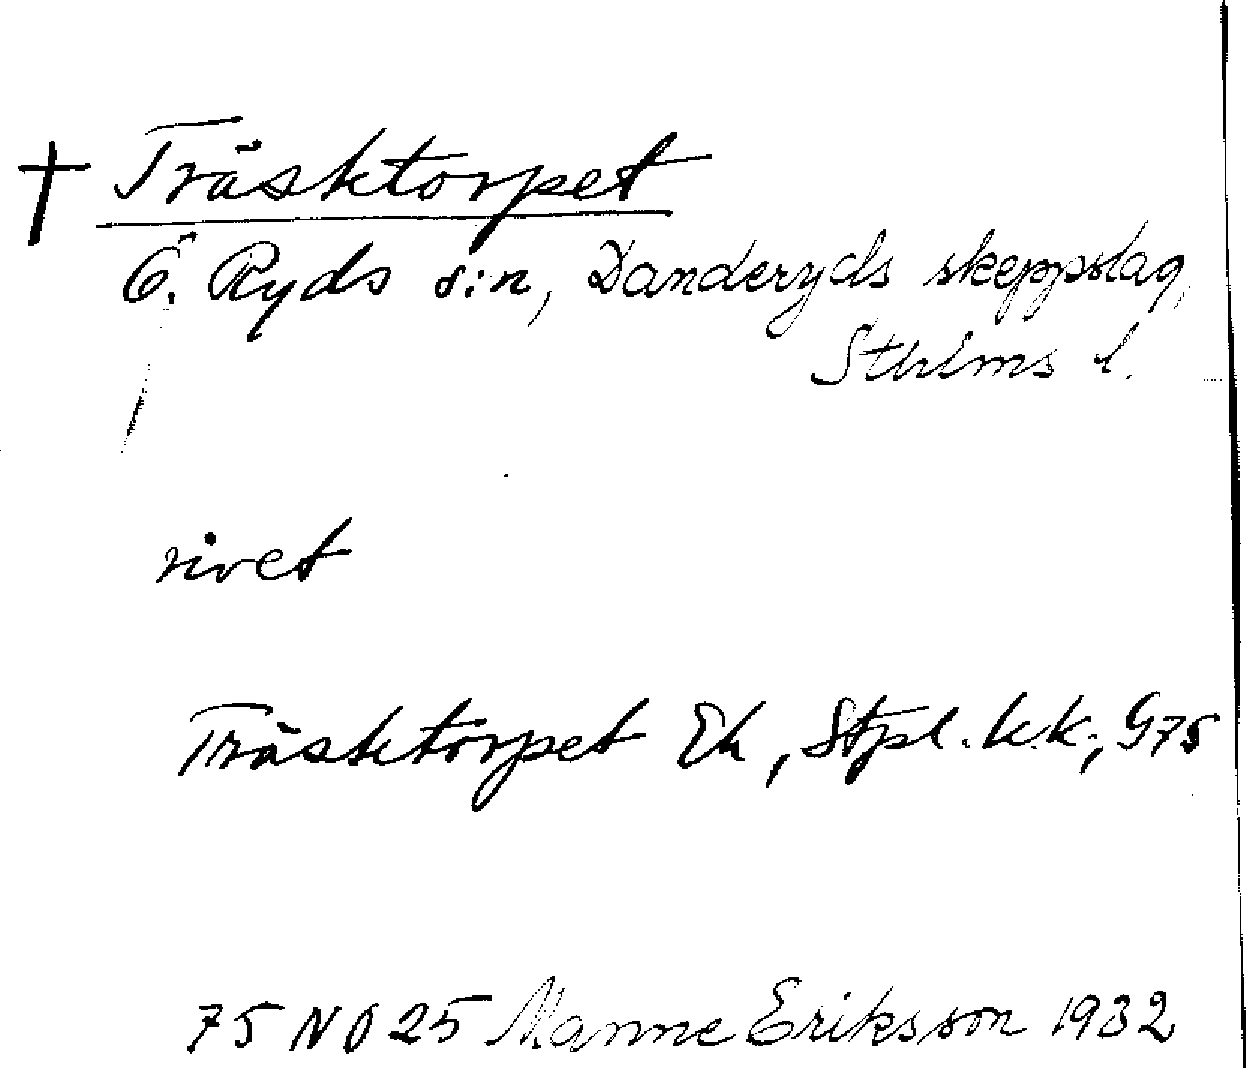 † Träsktorpet
Ö. Ryds s:n, Danderyds skeppslag,
Sthlms l.
rivet
Träsktorpet Ek, Stpl. k.k., G75
75 NO 25 Manne Eriksson 1932